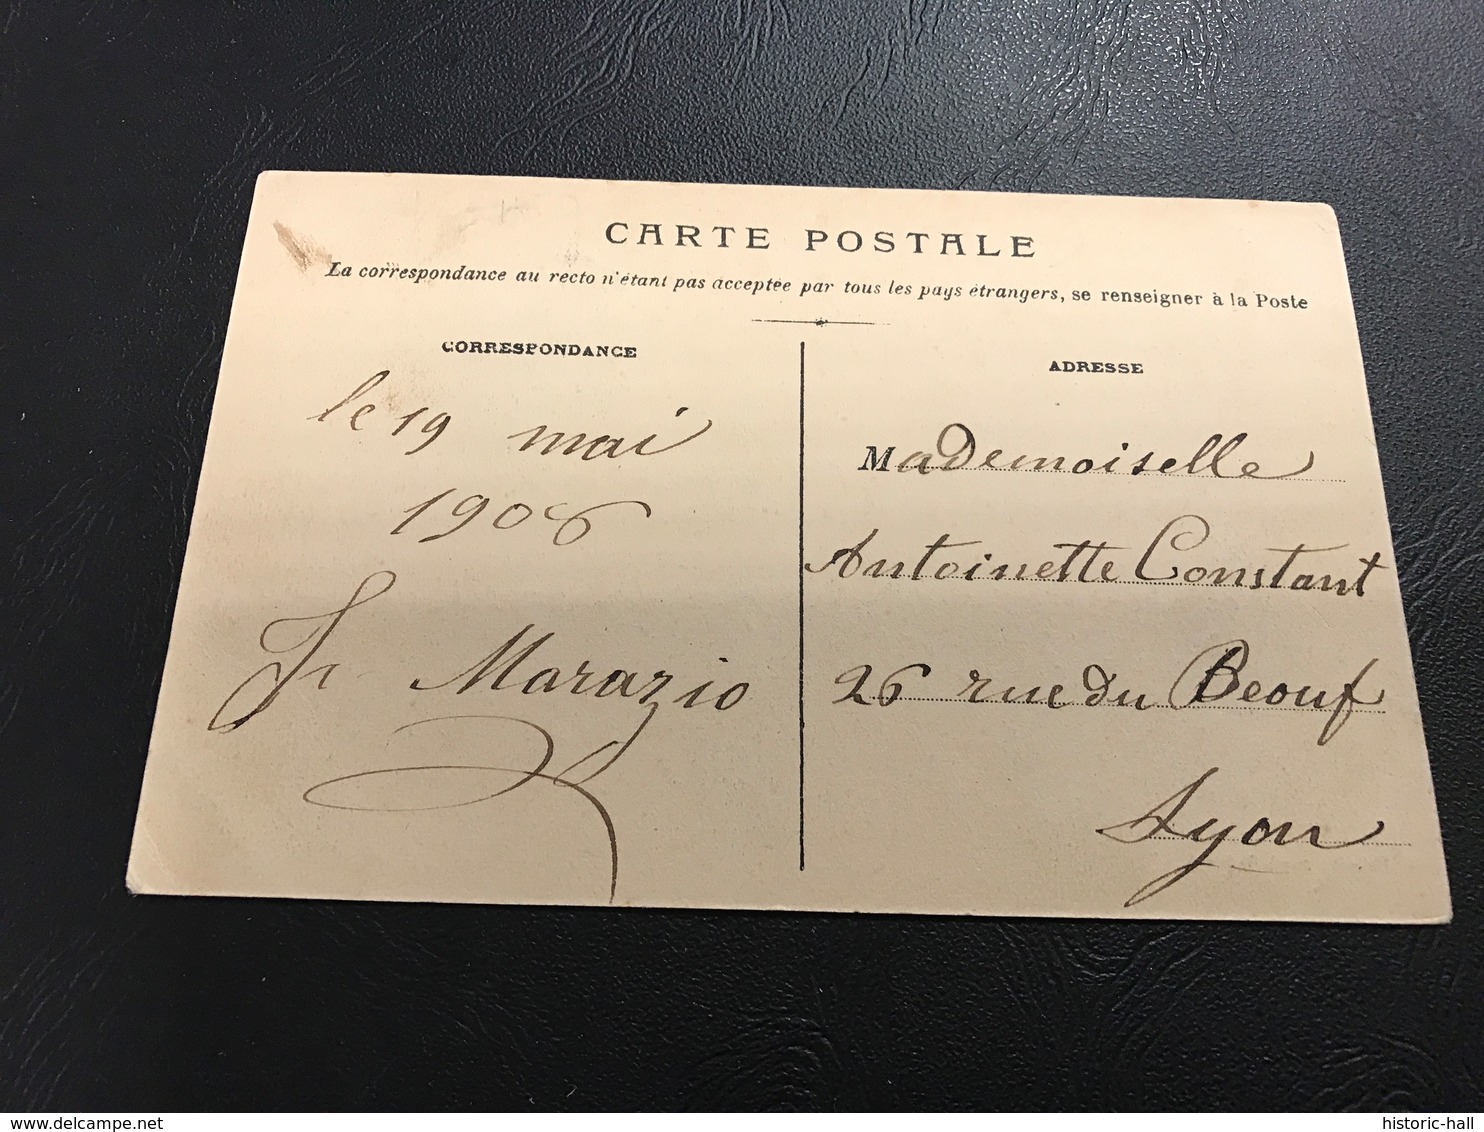 CARTE POSTALE
La correspondance au recto n'étant pas acceptée par tous les pays étrangers, se renseigner à la Poste
CORRESPONDANCE
le 19 mai
1906
Fr Marazio
ADRESSE
Mademoiselle
Antoinette Constant
26 rue du Beouf
Lyon
delcampe.net
historic-hall